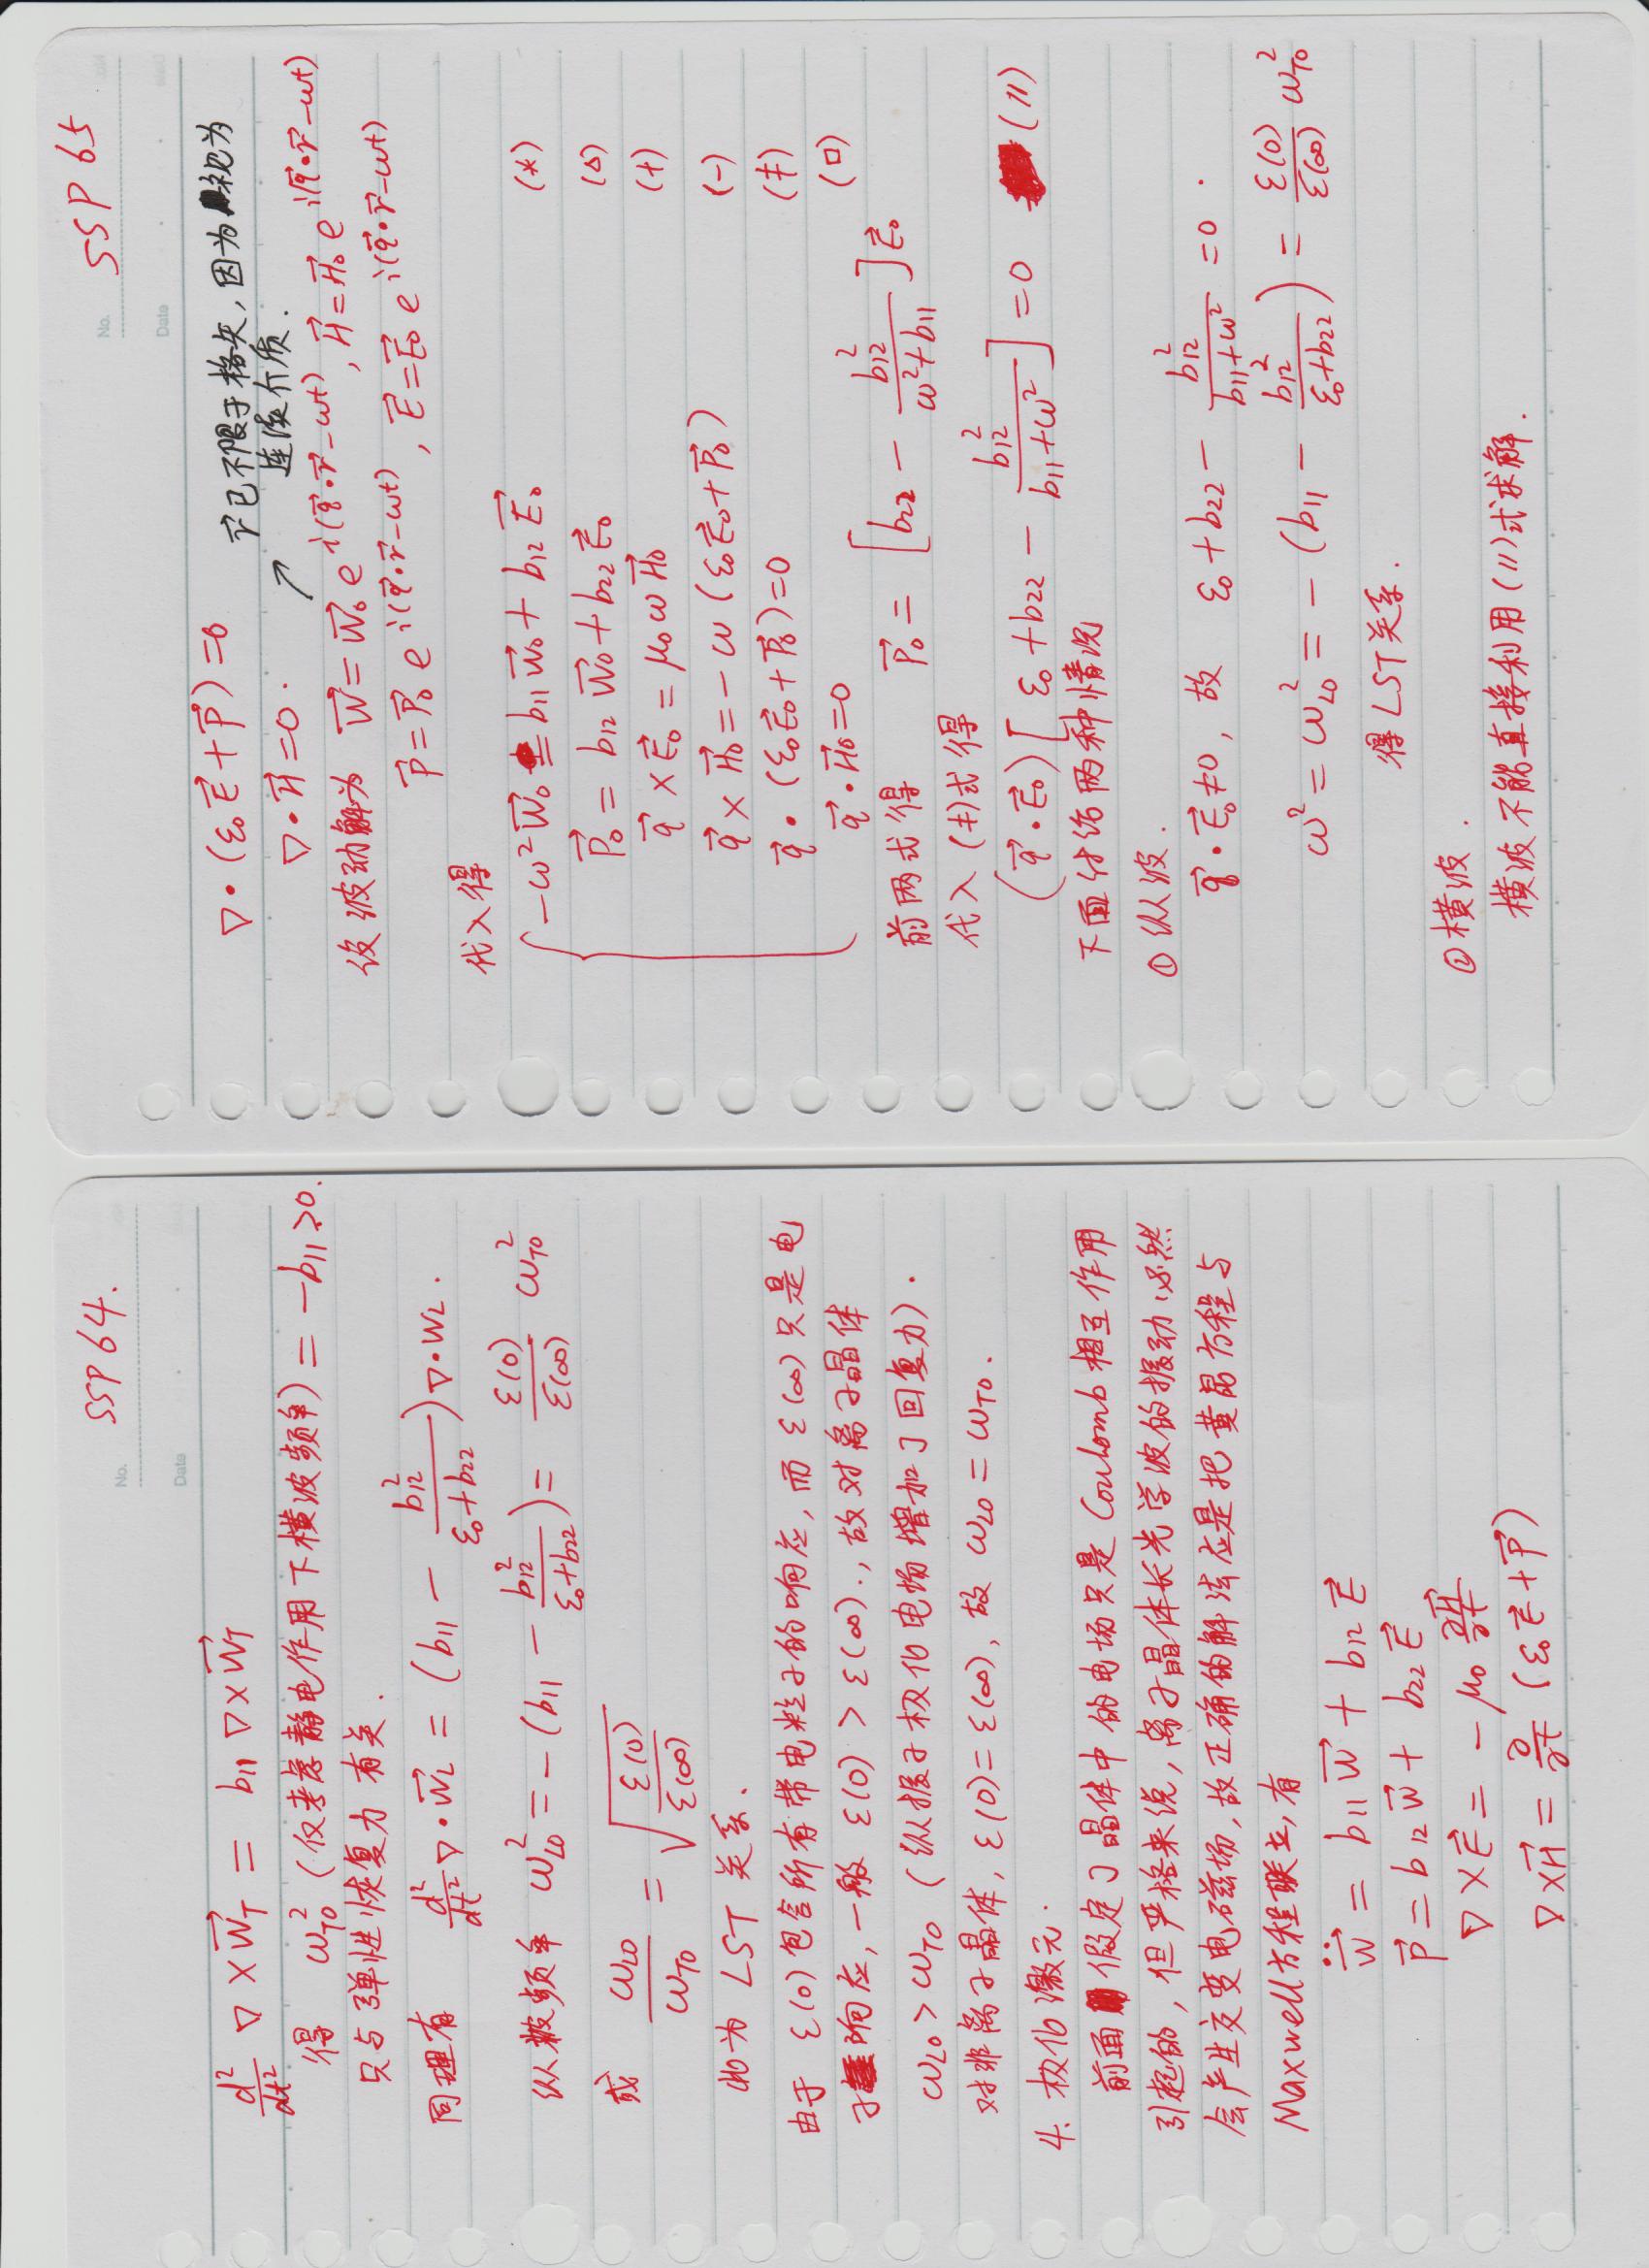 SSP 64.
No.
Date
d²/dt² ∇×W⃗_T = b₁₁ ∇×W⃗_T
得 ω_TO² (仅考虑静电作用下横波频率) = -b₁₁ > 0.
只与弹性恢复力有关.
同理有 d²/dt² ∇·W⃗_L = (b₁₁ - b₁₂²/(ε₀+b₂₂)) ∇·W_L.
纵波频率 ω_LO² = -(b₁₁ - b₁₂²/(ε₀+b₂₂)) = ε(0)/ε(∞) ω_TO²
或 ω_LO/ω_TO = √(ε(0)/ε(∞))
此为 LST 关系.
由于 ε(0) 包含所有带电粒子的响应, 而 ε(∞) 只是电
子响应, 一般 ε(0) > ε(∞)., 故对离子晶体
ω_LO > ω_TO (纵振子极化电场增加了回复力).
对非离子晶体, ε(0) = ε(∞), 故 ω_LO = ω_TO.
4. 极化激元.
前面假定了晶体中的电场只是 Coulomb 相互作用
引起的, 但严格来说, 离子晶体长光学波的振动必然
会产生交变电磁场, 故正确的解法应是把黄昆方程与
Maxwell方程联立, 有
W⃗̈ = b₁₁W⃗ + b₁₂E⃗
P⃗ = b₁₂W⃗ + b₂₂E⃗
∇×E⃗ = -μ₀ ∂H⃗/∂t
∇×H⃗ = ∂/∂t (ε₀E⃗+P⃗)
SSP 65
No.
Date
∇·(ε₀E⃗+P⃗) = 0
∇·H⃗ = 0.
r⃗已不限于格矢, 因为视为
连续介质.
↗
设波动解为 W⃗ = W⃗₀ e^{i(q⃗·r⃗-ωt)}, H⃗ = H⃗₀ e^{i(q⃗·r⃗-ωt)}
P⃗ = P⃗₀ e^{i(q⃗·r⃗-ωt)}, E⃗ = E⃗₀ e^{i(q⃗·r⃗-ωt)}
代入得
-ω²W⃗₀ = b₁₁W⃗₀ + b₁₂E⃗₀ (*)
P⃗₀ = b₁₂W⃗₀ + b₂₂E⃗₀ (△)
q⃗×E⃗₀ = μ₀ωH⃗₀ (+)
q⃗×H⃗₀ = -ω(ε₀E⃗₀+P⃗₀) (-)
q⃗·(ε₀E⃗₀+P⃗₀) = 0 (‡)
q⃗·H⃗₀ = 0 (□)
前两式得 P⃗₀ = [b₂₂ - b₁₂²/(ω²+b₁₁)]E⃗₀
代入 (‡)式得
(q⃗·E⃗₀)[ε₀+b₂₂ - b₁₂²/(b₁₁+ω²)] = 0 (//)
下面讨论两种情况
① 纵波.
q⃗·E⃗₀ ≠ 0, 故 ε₀+b₂₂ - b₁₂²/(b₁₁+ω²) = 0.
ω² = ω_LO² = -(b₁₁ - b₁₂²/(ε₀+b₂₂)) = ε(0)/ε(∞) ω_TO²
得 LST关系.
② 横波.
横波不能直接利用 (//)式求解.